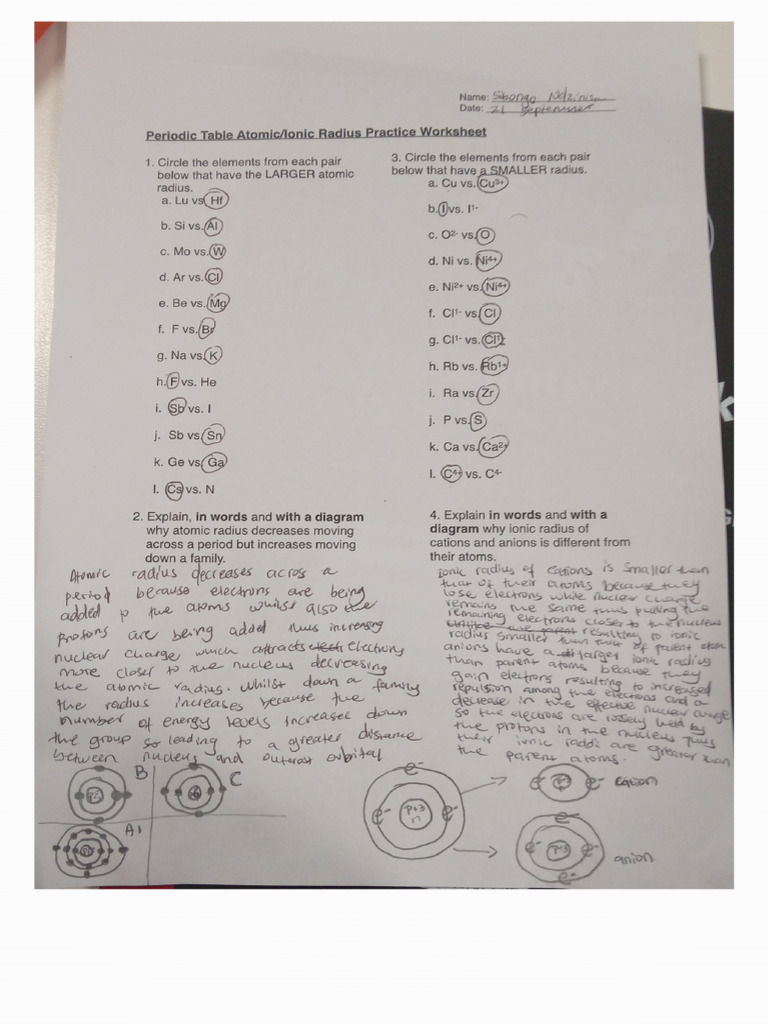 Name: Sibongo
Date: 21 September
Periodic Table Atomic/Ionic Radius Practice Worksheet
1. Circle the elements from each pair
below that have the LARGER atomic
radius.
a. Lu vs. Hf
b. Si vs. Al
c. Mo vs. W
d. Ar vs. Cl
e. Be vs. Mg
f. F vs. Br
g. Na vs. K
h. F vs. He
i. Sb vs. I
j. Sb vs. Sn
k. Ge vs. Ga
l. Cs vs. N
2. Explain, in words and with a diagram
why atomic radius decreases moving
across a period but increases moving
down a family.
Atomic radius decreases across a
period because electrons are being
added to the atoms whilst also the
protons are being added thus increasing
nuclear charge which attracts electrons
more closer to the nucleus decreasing
the atomic radius. Whilst down a family
the radius increases because the
number of energy levels increased down
the group so leading to a greater distance
between nucleus and outerost orbital
B
C
Al
3. Circle the elements from each pair
below that have a SMALLER radius.
a. Cu vs. Cu³⁺
b. I vs. I¹⁻
c. O²⁻ vs. O
d. Ni vs. Ni⁴⁺
e. Ni²⁺ vs. Ni⁴⁺
f. Cl¹⁻ vs. Cl
g. Cl¹⁻ vs.
h. Rb vs. Rb¹⁺
i. Ra vs. Zr
j. P vs. S
k. Ca vs. Ca²⁺
l. C⁴⁺ vs. C⁴⁻
4. Explain in words and with a
diagram why ionic radius of
cations and anions is different from
their atoms.
ionic radius of cations is smaller than
that of their atoms because they
lose electrons while nuclear charge
remains the same thus pulling the
remaining electrons closer to the nucleus
resulting to ionic
radius smaller than that of parent atom
anions have a larger ionic radius
than parent atoms because they
gain electrons resulting to increased
repulsion among the electrons and a
decrease in the effective nuclear charge
so the electrons are lossely held by
the protons in the nucleus thus
their ionic raddi are greater than
the parent atoms.
e⁻
e⁻ p+3 e⁻
n
e⁻ e⁻ cation
e⁻
e⁻ e⁻ anion
e⁻